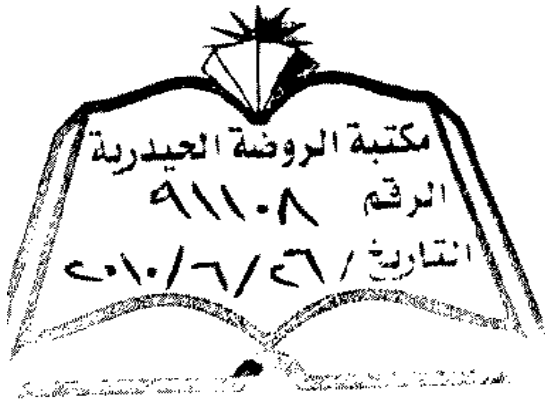 مكتبة الروضة الحيدرية
الرقم ٩١١٠٨
التاريخ / ٢٦/٦/٢٠١٠